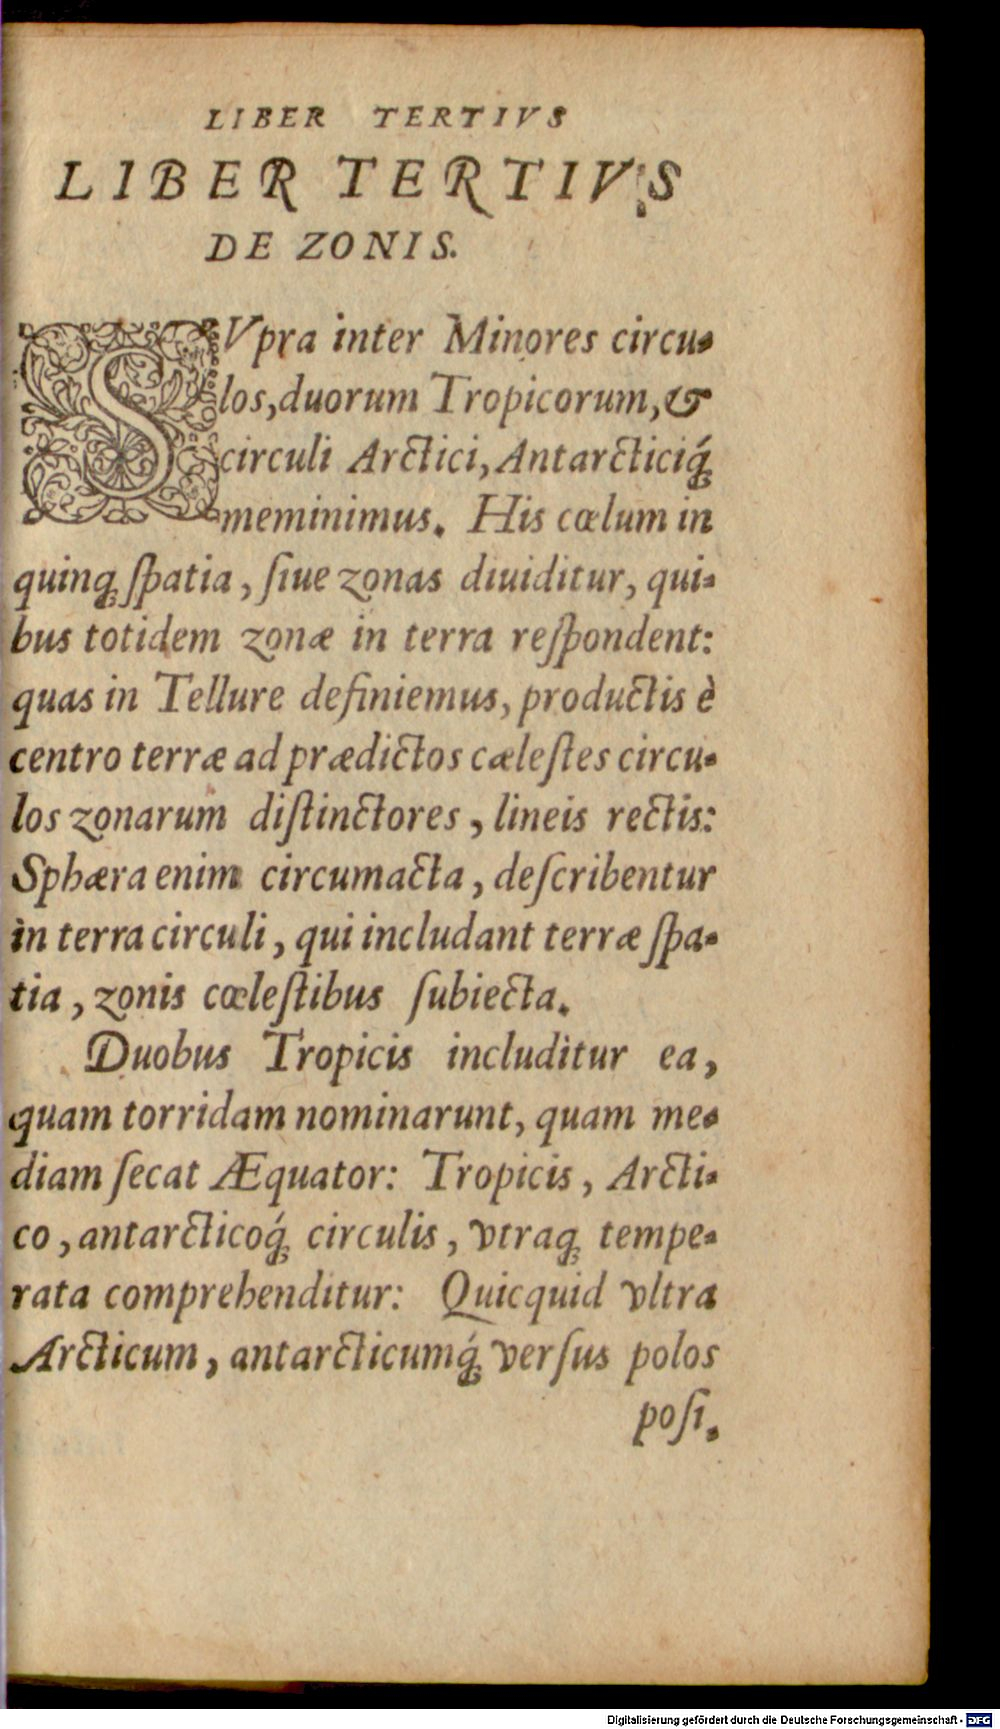 LIBER TERTIVS
LIBER TERTIVS
DE ZONIS.
SVpra inter Minores circu-
los, duorum Tropicorum, &
circuli Arctici, Antarcticiq́;
meminimus. His cœlum in
quinq; ſpatia, ſiue zonas diuiditur, qui-
bus totidem zonæ in terra reſpondent:
quas in Tellure definiemus, productis è
centro terræ ad prædictos cæleſtes circu-
los zonarum diſtinctores, lineis rectis:
Sphæra enim circumacta, deſcribentur
in terra circuli, qui includant terræ ſpa-
tia, zonis cœleſtibus ſubiecta.
Duobus Tropicis includitur ea,
quam torridam nominarunt, quam me-
diam ſecat Æquator: Tropicis, Arcti-
co, antarcticoq́; circulis, vtraq; tempe-
rata comprehenditur: Quicquid vltra
Arcticum, antarcticumq́; verſus polos
poſi-
Digitalisierung gefördert durch die Deutsche Forschungsgemeinschaft - DFG